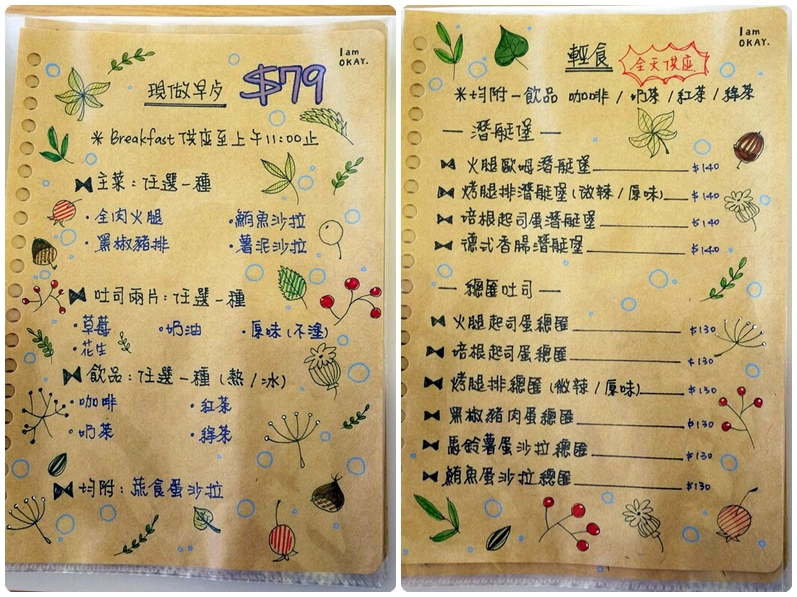 I am
OKAY.
現做早点 $79
※Breakfast 供應至上午11:00止
主菜:任選一種
・全肉火腿 ・鮪魚沙拉
・黑椒豬排 ・薯泥沙拉
吐司兩片:任選一種
・草莓 ・奶油 ・原味(不塗)
・花生
飲品:任選一種(熱/冰)
・咖啡 ・紅茶
・奶茶 ・綠茶
均附:蔬食蛋沙拉
I am
OKAY.
輕食 全天供應
※均附一飲品 咖啡/奶茶/紅茶/綠茶
— 潛艇堡 —
火腿歐姆潛艇堡 $140
烤腿排潛艇堡(微辣/原味) $140
培根起司蛋潛艇堡 $140
德式香腸潛艇堡 $140
— 總匯吐司 —
火腿起司蛋總匯 $130
培根起司蛋總匯 $130
烤腿排總匯(微辣/原味) $130
黑椒豬肉蛋總匯 $130
馬鈴薯蛋沙拉總匯 $130
鮪魚蛋沙拉總匯 $130